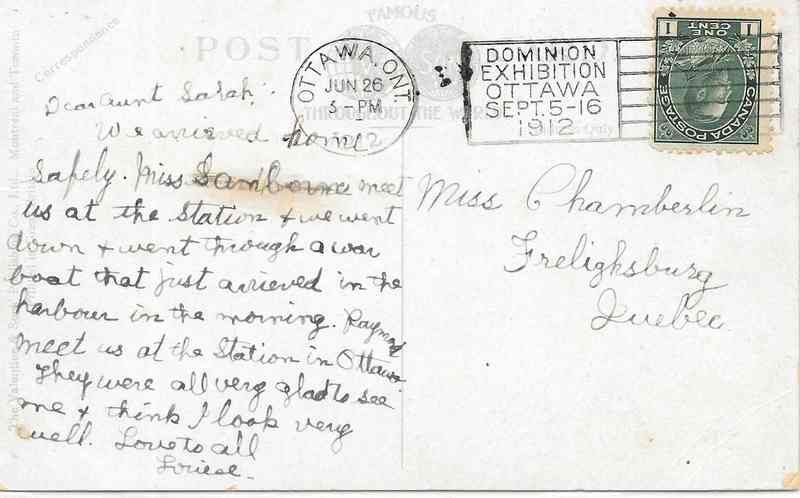 Correspondence
POST
FAMOUS
THROUGHOUT THE WORLD
OTTAWA, ONT.
JUN 26
3 - PM
1912
DOMINION
EXHIBITION
OTTAWA
SEPT. 5-16
1912
Only
1 ONE CENT 1
CANADA POSTAGE
Dear Aunt Sarah:
We arrieved home
safely. Miss Sanborne meet
us at the Station & we went
down & went through a war
boat that just arrieved in the
harbour in the morning. Raymond
meet us at the Station in Ottawa
They were all very glad to see
me & think I look very
well. Love to all
Louese.
Miss Chamberlin
Frelighsburg
Quebec.
The Valentine & Sons Publishing Co., Ltd., Montreal and Toronto